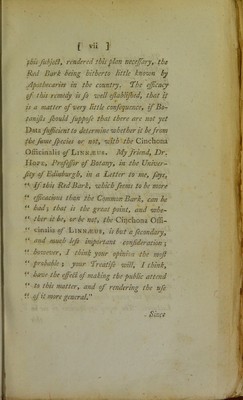 [ vii ]
this subject, rendered this plan necessary, the
Red Bark being hitherto little known by
Apothecaries in the country. The efficacy
of this remedy is so well established, that it
is a matter of very little consequence, if Bo-
tanists should suppose that there are not yet
Data sufficient to determine whether it be from
the same species or not, with the Cinchona
Officinalis of LINNÆUS. My friend, Dr.
HOPE, Professor of Botany, in the Univer-
sity of Edinburgh, in a Letter to me, says,
“ If this Red Bark, which seems to be more
“ efficacious than the Common Bark, can be
“ had; that is the great point, and whe-
“ ther it be, or be not, the Cinchona Offi-
“ cinalis of LINNÆUS, is but a secondary,
“ and much less important consideration;
“ however, I think your opinion the most
“ probable: your Treatise will, I think,
“ have the effect of making the public attend
“ to this matter, and of rendering the use
“ of it more general.”
Since